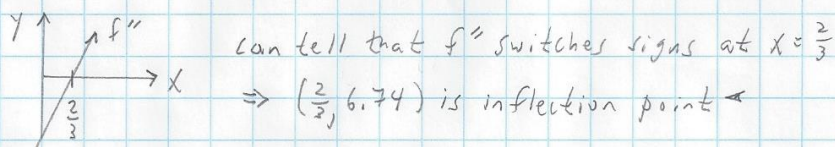 y f″
can tell that f″ switches signs at x = 2/3
x
⇒ (2/3, 6.74) is inflection point
2/3